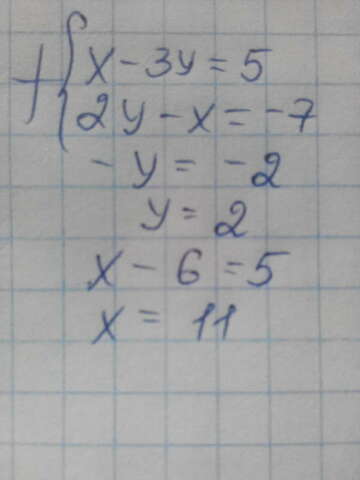 + { x - 3y = 5
2y - x = -7
- y = -2
y = 2
x - 6 = 5
x = 11